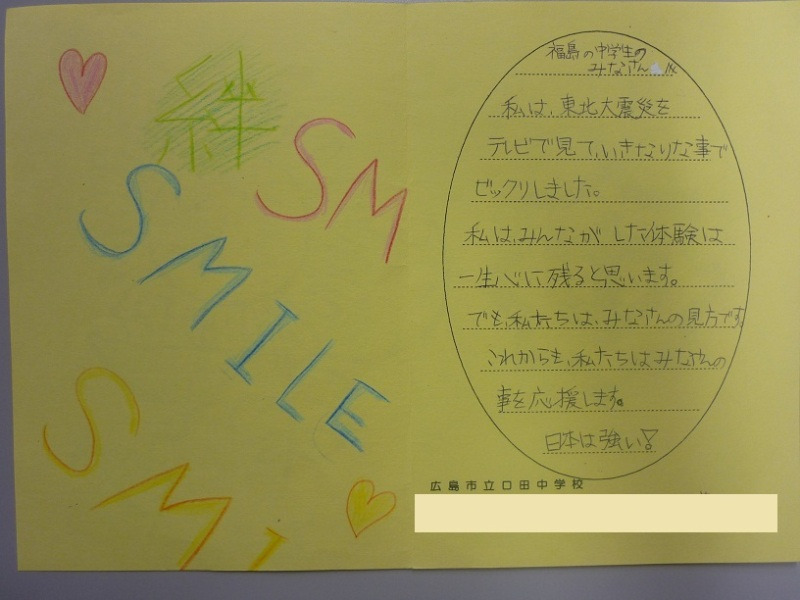 絆
SM
SMILE
SMI
福島の中学生の
みなさんへ
私は、東北大震災を
テレビで見て、いきなりな事で
ビックリしました。
私は、みんながした体験は
一生心に残ると思います。
でも、私たちは、みなさんの見方です
これからも、私たちはみなさんの
事を応援します。
日本は強い!
広島市立口田中学校